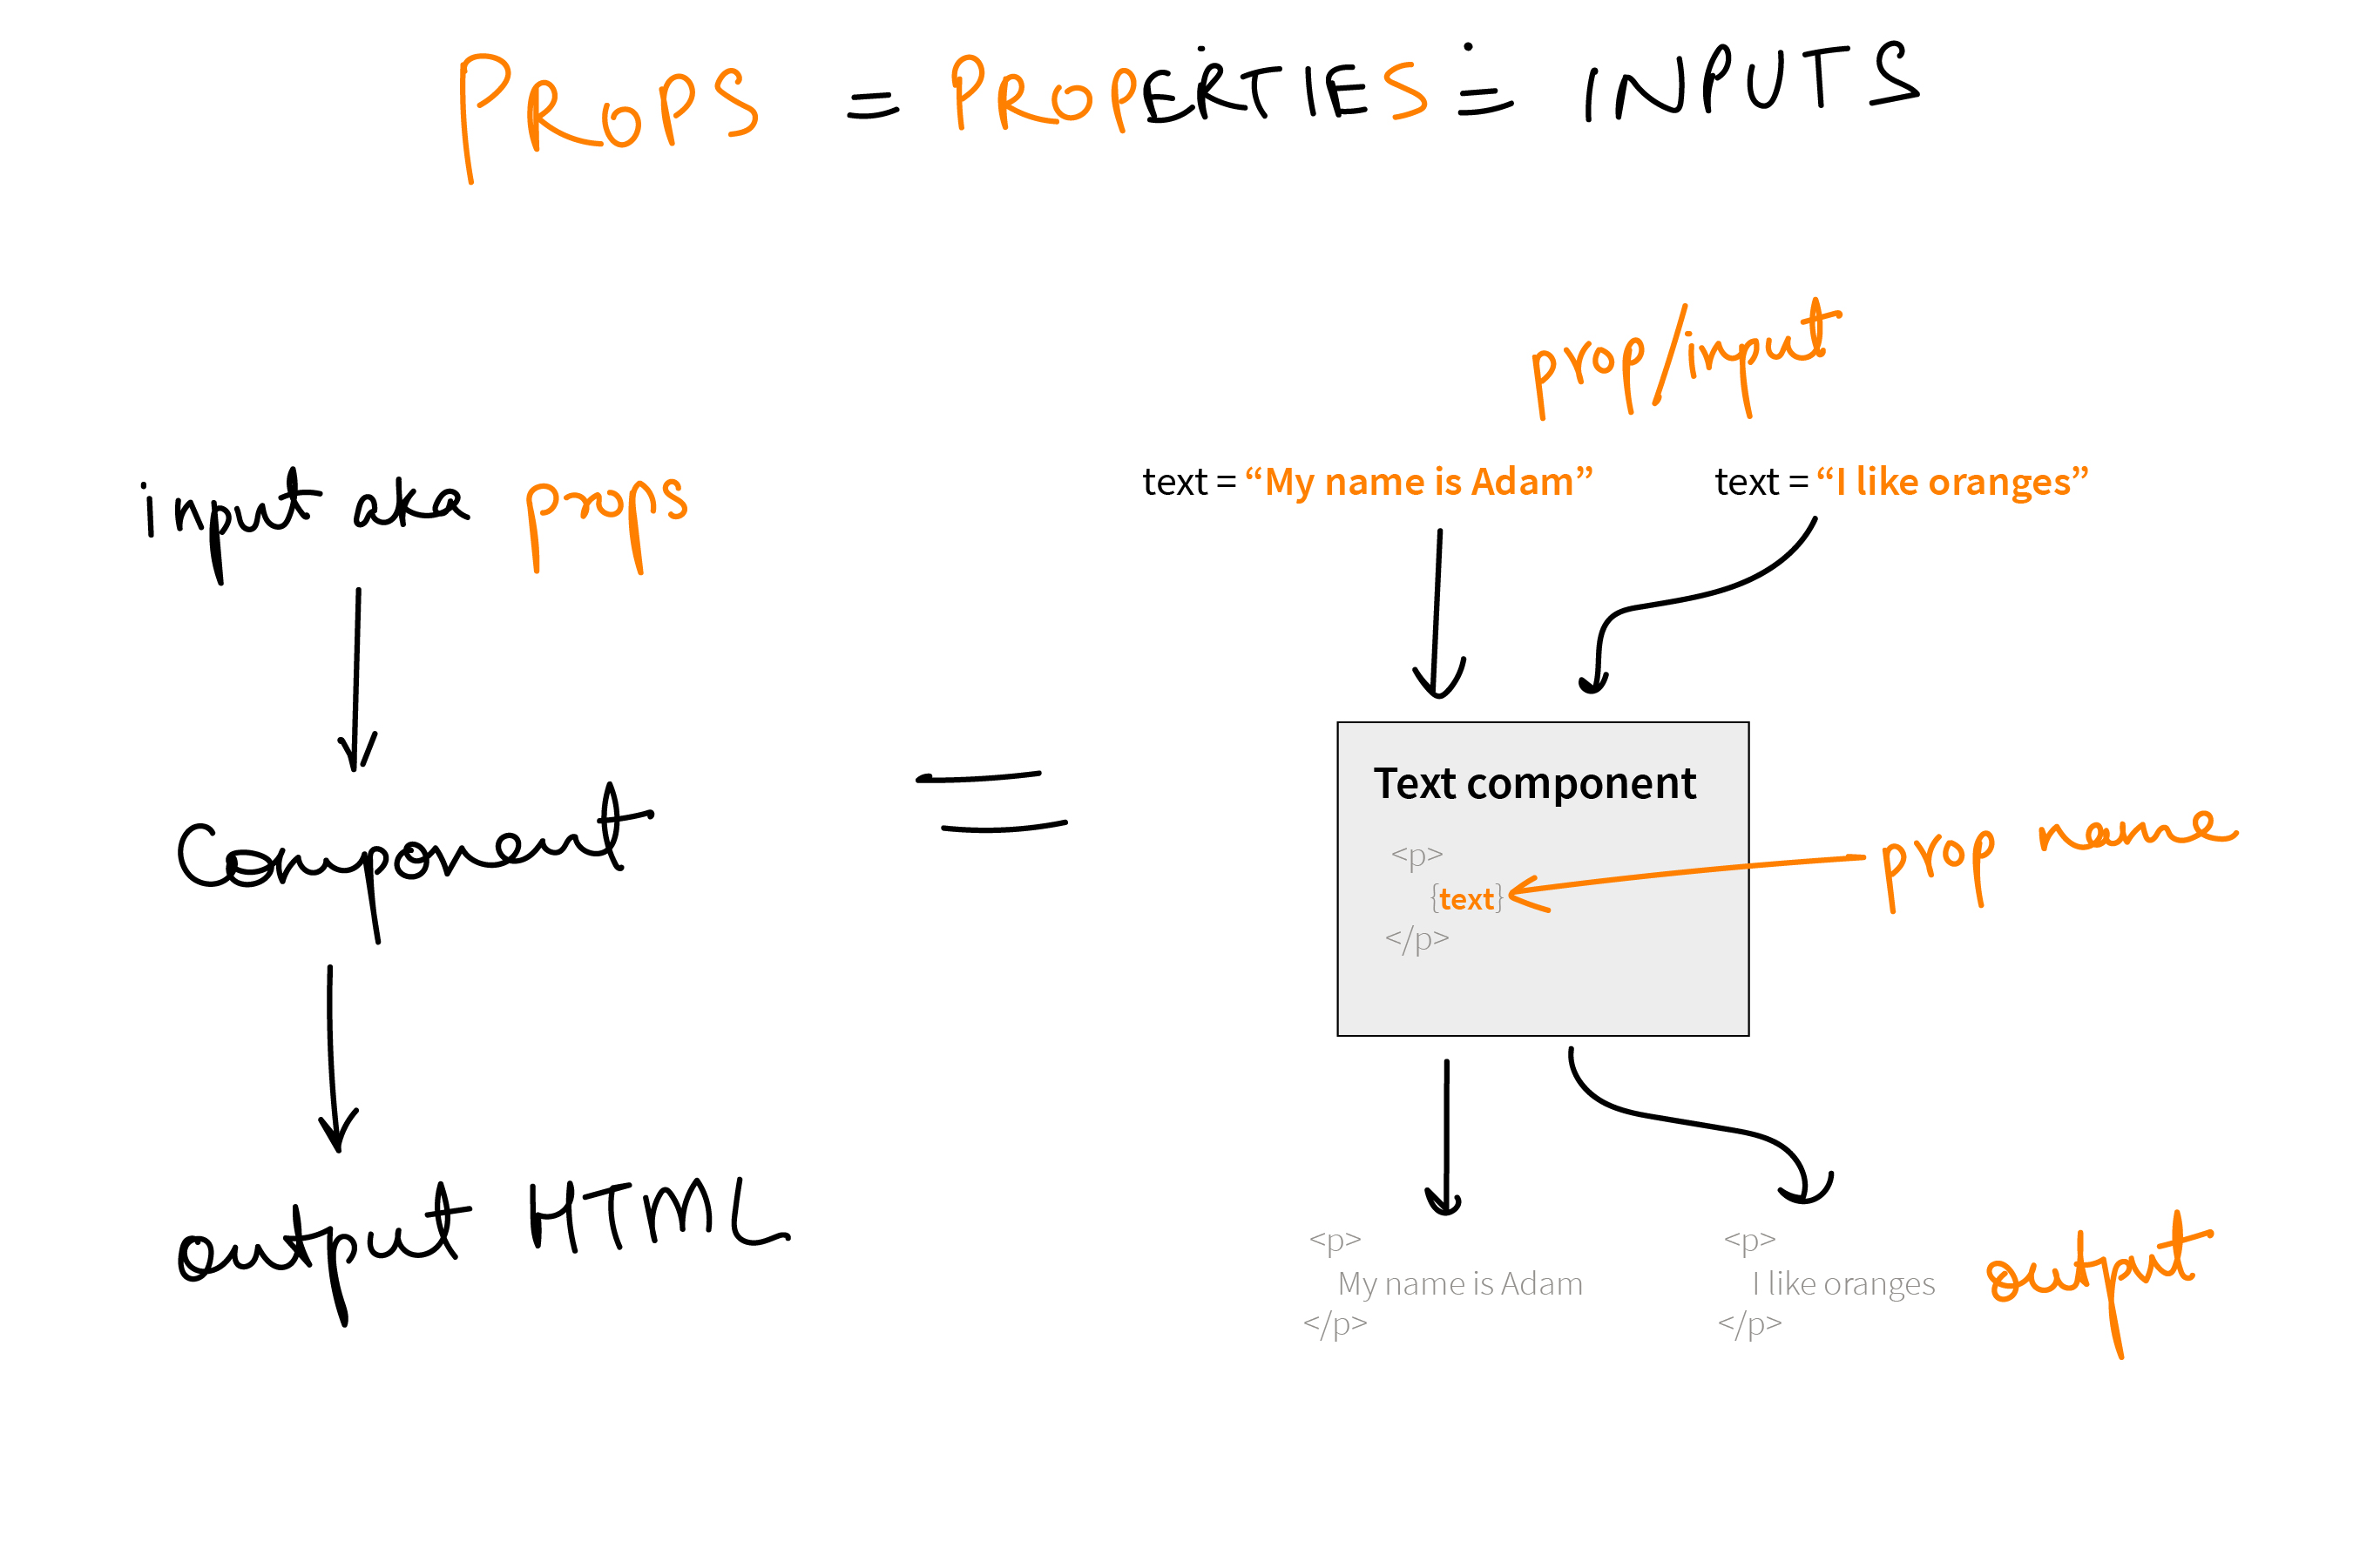 PROPS = PROPERTIES = INPUTS
input aka props
Component
output HTML
=
prop/input
text = “My name is Adam”
text = “I like oranges”
Text component
<p>
{text}
</p>
prop name
<p>
My name is Adam
</p>
<p>
I like oranges
</p>
output